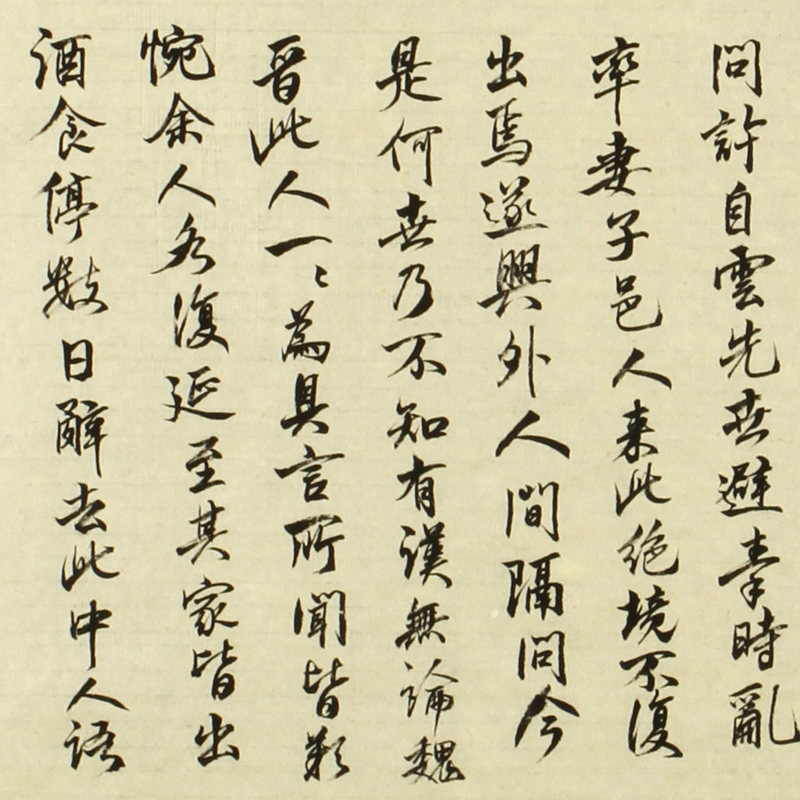 問訊自雲先世避秦時亂
率妻子邑人来此絶境不復
出焉遂與外人間隔問今
是何世乃不知有漢無論魏
晉此人一〻為具言所聞皆歎
惋余人各復延至其家皆出
酒食停數日辭去此中人語